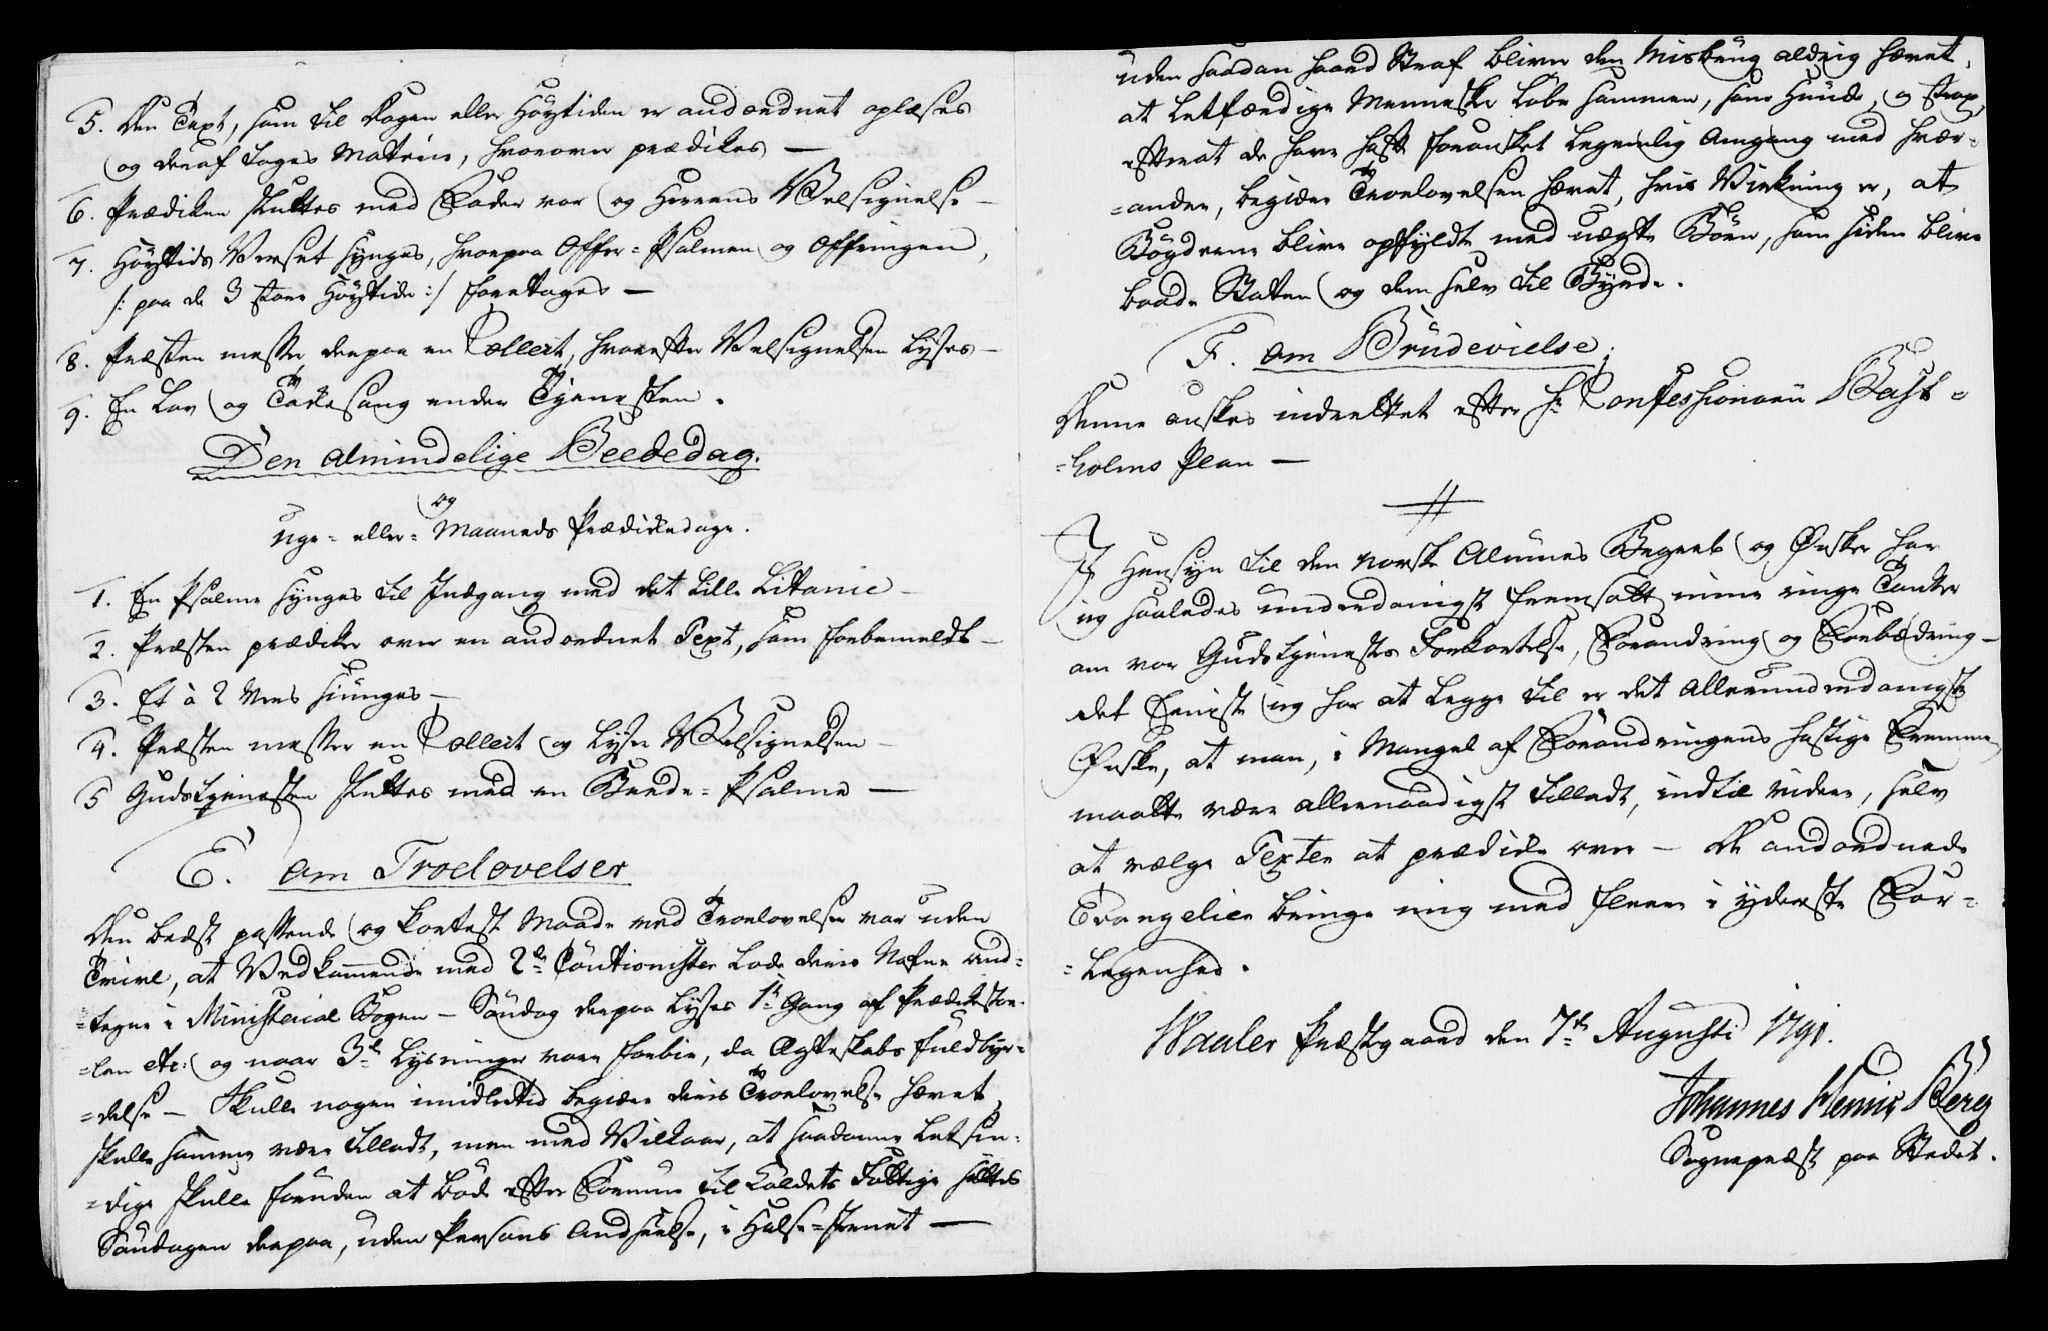 5. Den Text, som til Dagen eller Höytiden er andordnet oplæses
og deraf tages Materie, hvorover prædikes —
6. Prædiken sluttes med Fader vor og Herrens Velsignelse —
7. Höytids Verset synges, hvorpaa Offer-Psalmen og Offringen,
/: paa de 3 store Höytider :/ foretages —
8. Præsten messer derpaa en Collect, hvorefter Velsignelsen lyses —
9. En Lov og Takkesang ender Tjenesten.
Den almindelige Beededag.
og
Uge- eller- Maaneds Prædikedage.
1. En Psalme synges til Indgang med det lille Litanie —
2. Præsten prædiker over en andordnet Text, som forbemeldt —
3. Et à 2 Vers siunges —
4. Præsten messer en Collect og lyser Velsignelsen —
5 Gudstjenesten sluttes med en Beede-Psalme —
E. om Troelovelser
Den bedst passende og kortest Maade med Troelovelser var uden
Tvivl, at Vedkommende med 2de Cautionister lode deres Nafne and-
-tegne i Ministerial Bogen — Söndag derpaa lyses 1ste Gang af Prædikesto-
-len etc: og naar 3de Lysninger vare forbie, da Ægteskabs fuldbyr-
-delse — Skulle nogen imidlertid begiære deres Troelovelse hævet,
skulle samme være tilladt, men med Vilkaar, at saadanne Letsin-
-dige skulle foruden at böde efter Formue til Caldets Fattige sættes
Söndagen derpaa, uden Persons Andseelse, i Halse-Jernet —
uden saadan haard Straf bliver den Misbrug aldrig hævet,
at letfærdige Mennesker löbe sammen, som Hunde, og strax,
efterat de have haft forønsket legemlig Omgang med hver-
-andre, begiære Troelovelsen hævet, hvis Virkning er, at
Bögderne blive opfyldte med uægte Börn, som siden blive
baade Staten og dem selv til Byrde.
F. om Brudevielse;
Denne ønskes indrettet efter Hr Confessionarii Bast-
-holms Plan —
I Hensyn til den norske Almues Begreb og Ønsker har
ieg saaledes underdanigst fremsatt mine ringe Tanker
om vor Gudstjenestes Forkortelse, Forandring og Forbedring —
det Eeniste ieg har at legge til er det allerunderdanigste
Ønske, at man, i Mangel af Forandringens hastige Fremme,
maatte være allernaadigst tilladt, indtil videre, selv
at vælge Texter at prædike over — De andordnede
Evangelier bringe mig med fleere i yderste For-
-legenhed.
Waaler Præstegaard den 7de Augusti 1791.
Johannes Henrik Berg
Sognepræst paa Stedet.